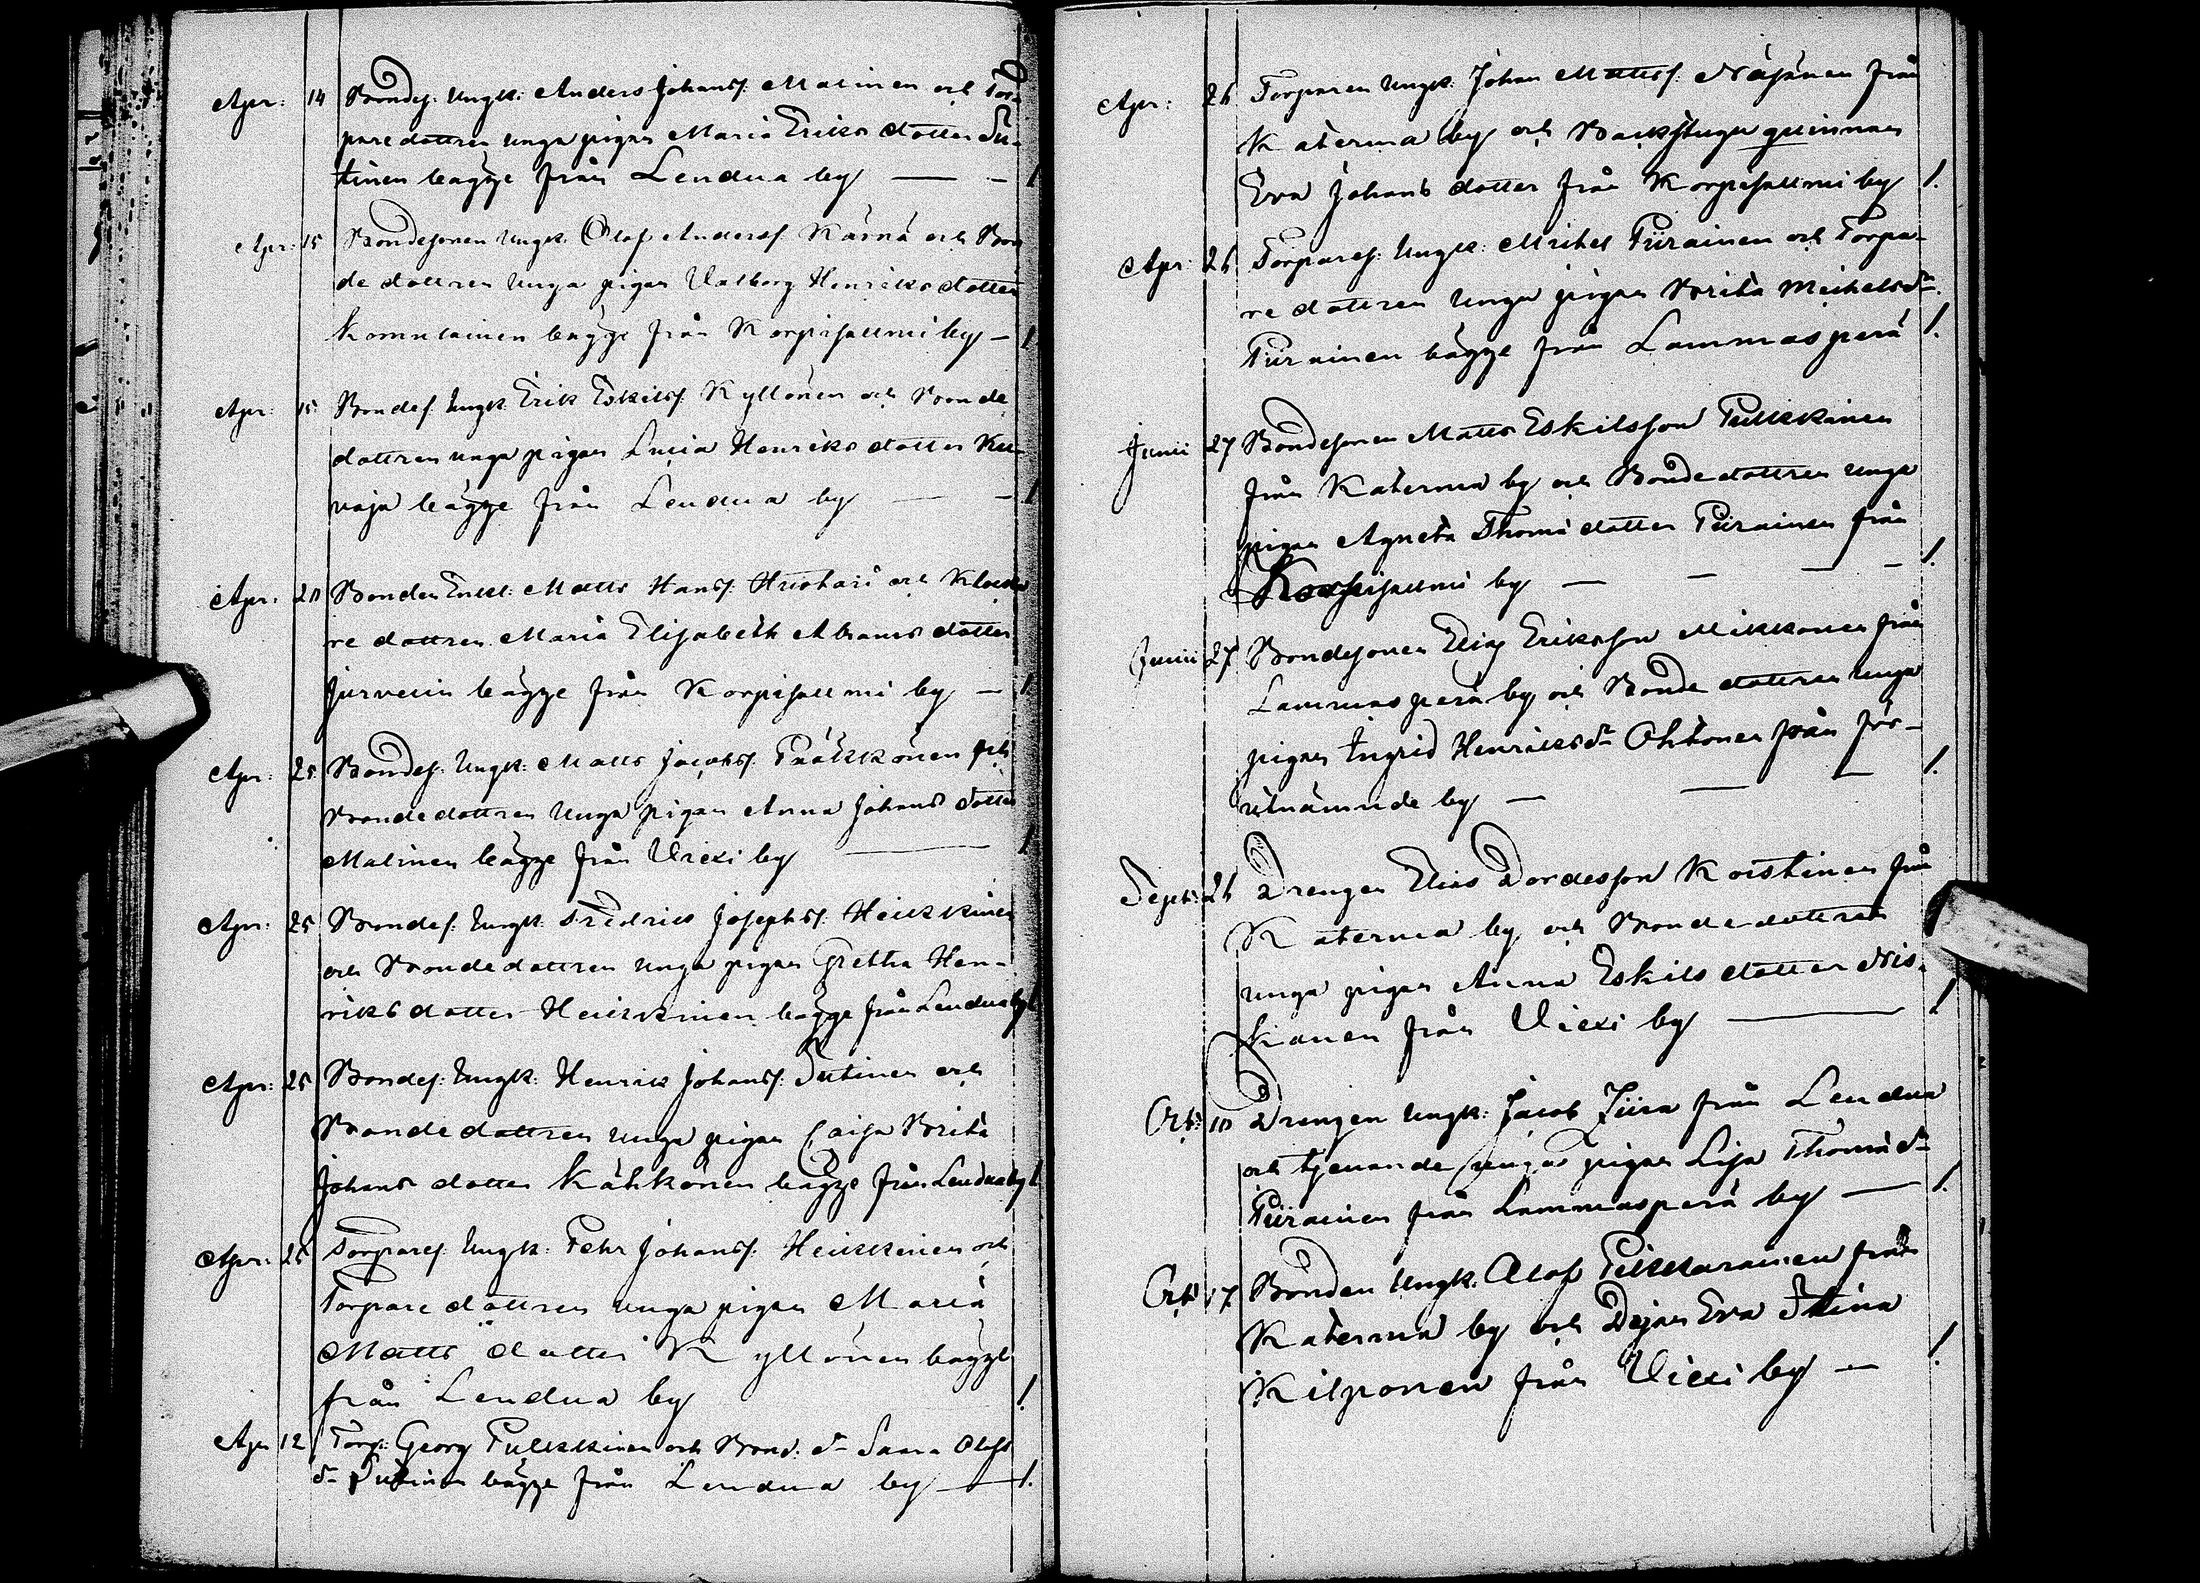 Apr: 14 Bondes. Ungk: Anders Johanss. Malinen och Tor-
pare dottren unga pigan Maria Eriks dotter Tu-
tinen bägge från Lendua by — - 1
Apr: 15 Bondesonen Ungk. Olof Anderss. Kärnä och Bon
de dottren Unga pigan Valborg Henriks dotter
Komulainen bägge från Korpisalmi by - 1
Apr: 15 Bondes. Ungk: Erik Eskilss. Kyllönen och Bonde
dottren unga pigan Lucia Henriks dotter Ku-
vaja bägge från Lendua by — - 1
Apr: Bonden Enkl: Matts Hanss. och Klocka
re dottren Maria Elisabeth Abrams dotter
Jurvelin bägge från Korpisalmi by — 1
Apr: 25 Bondes. Ungk: Matts Jacobss. Pääkkönen och
Bondedottren Unga pigan Anna Johans dotter
Malinen bägge från Viexi by — 1
Apr: 25 Bondes. Ungk. Fredric Josephss. Heikkinen
och Bondedottren unga pigan Gretha Hen-
riks dotter Heikkinen bägge från Lendua by 1
Apr: 25 Bondes. Ungk: Henric Johanss. Tutinen och
Bondedottren unga pigan Caisa Brita
Johans dotter Kähkönen bägge från Lendua by 1
Apr: 25 Torpares. Ungk: Pehr Johanss. Heikkinen och
Torpare dottren unga pigan Maria
Matts dotter Kyllönen bägge
från Lendua by 1.
Apr 12 Torp: Georg Pulkkinen och Bond. dr Olofs
dr Tutinen bägge från Lendua by — 1.
Apr: 26 Torparen Ungk. Johan Mattss. Näjänen från
Katerma by och Backstugu quinnan
Eva Johans dotter från Korpisalmi by 1.
Apr: 26 Torpares. Ungk: Michel Piirainen och Torpa-
re dottren Unga pigan Brita Michels dr
Piirainen bägge från Lammasperä 1.
Junii 27 Bondesonen Matts Eskilsson Pulkkinen
från Katerma by och Bondedottren unga
pigan Agneta Thoma dotter Piirainen från
Korpisalmi by — — — - 1.
Junii 27. Bondesonen Elias Eriksson Mikkonen från
Lammasperä by och Bonde dottren unga
pigan Ingrid Henricsdr Ohtonen från för-
utnämnde by — — — 1.
Sept: 26 Drengen Elias Koistinen från
Katerma by och Bondedottren
unga pigan Anna Eskils dotter Nis-
kanen från Viexi by — 1
Oct: 10 Drengen Ungk: Jacob från Lendua
och tjenande unga pigan Lisa Thoma dr
Piirainen från Lammasperä by — 1.
Oct: 17. Bonden Ungk. Olof Pikkarainen från
Katerma by och Dejan Eva Stina
Kilponen från Viexi by — 1.